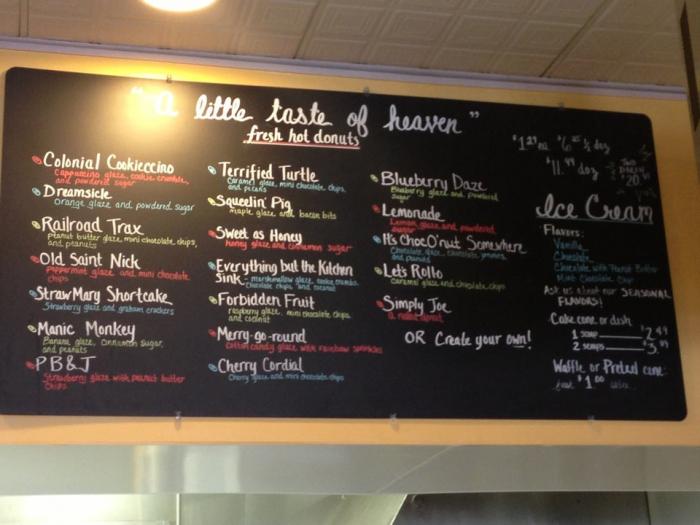 "a little taste of heaven"
fresh hot donuts
Colonial Cookieccino
Cappuccino glaze, cookie crumbs,
and powdered sugar
Dreamsicle
Orange glaze and powdered sugar
Railroad Trax
Peanut butter glaze, mini chocolate chips,
and peanuts
Old Saint Nick
Peppermint glaze and mini chocolate
chips
StrawMary Shortcake
Strawberry glaze and graham crackers
Manic Monkey
Banana glaze, cinnamon sugar,
and peanuts
PB&J
Strawberry glaze with peanut butter
chips
Terrified Turtle
Caramel glaze, mini chocolate chips,
and pecans
Squeelin' Pig
maple glaze and bacon bits
Sweet as Honey
honey glaze and cinnamon sugar
Everything but the Kitchen
Sink - marshmallow glaze, cookie crumbs,
chocolate chips, and coconut
Forbidden Fruit
raspberry glaze, mini chocolate chips,
and coconut
Merry-go-round
Cotton candy glaze with rainbow sprinkles
Cherry Cordial
Cherry glaze and mini chocolate chips
Blueberry Daze
Blueberry glaze and powdered
sugar
Lemonade
Lemon glaze and powdered
sugar
It's ChocO'nut Somewhere
Chocolate glaze, chocolate, peanuts,
and
Let's Rollo
Caramel glaze and chocolate chips
Simply Joe
OR Create your own!
$1.29 ea $6.25 ½ doz
$11.99 doz
TWO
DOZEN
$20
Ice Cream
Flavors:
Vanilla
Chocolate
Chocolate with Peanut Butter
Mint Chocolate Chip
Ask us about our SEASONAL
FLAVORS!
Cake cone or dish
1 scoop $2.49
2 scoops $3.99
Waffle or Pretzel cone:
just $1.00 extra